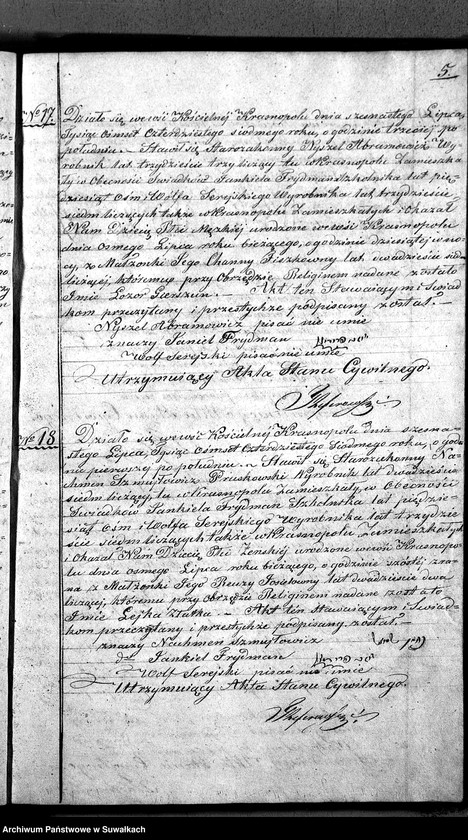 5.
No 17.
Działo się we wsi Kościelnéy Krasnopolu dnia szesnastego Lipca
Tysiąc ośmset Czterdziestego siodmego roku, o godzinie trzeciéy po
południu. – Stawił się Starozakonny Nyszel Abramowicz Wy-
robnik lat trzydzieście trzy liczący tu w Krasnopolu Zamieszka-
ły w Obecności Świadków Jankiela Frydman Szkolnika lat pię-
dziesiąt ośm i Wolfa Serejskiego Wyrobnika lat trzydzieście
siedm liczących także w Krasnopolu Zamieszkałych i Okazał
Nam Dziecię Płci Męzkiéy urodzone we wsi Krasnopolu
dnia osmego Lipca roku bieżącego, o godzinie dziesiątéy w no-
cy, z Małżonki Jego Channy Jiszkowny lat dwadzieście siedm
liczącéy, któremu przy Obrzędzie Religinem nadane zostało
Imie Lozor Gierszun. – Akt ten Stawaiącym i Świad-
kom przeczytany i przez tychże podpisany został. –
Nyszel Abramowicz pisać nie umie
znaczy Janiel Frydman
Wolf Serejski pisać nie umie
Utrzymuiący Akta Stanu Cywilnego.
No 18.
Działo się we wsi Kościelnéy Krasnopolu dnia szesna-
stego Lipca, Tysiąc ośmset Czterdziestego Siodmego roku, o godzi-
nie pierwszéy po południu. – Stawił się Starozakonny Na-
chmen Szmuyłowicz Pruskowski Wyrobnik lat dwadzieście
siedm liczący, tu w Krasnopolu zamieszkały w Obecności
Świadków Jankiela Frydman Szkolnika lat pięćdzie-
siąt Ośm i Wolfa Serejskiego Wyrobnika lat trzydzie-
ście siedm liczących także w Krasnopolu Zamieszkałych
i Okazał Nam Dziecię Płci Żeńskiéy urodzone we wsi Krasnopo-
lu dnia osmego Lipca roku bieżącego, o godzinie szostéy zra-
na z Małżonki Jego Reuzy Josielowny lat dwadzieście dwa
liczącéy, któremu przy Obrzędzie Religinem nadane zostało
Imie Lejka Złatka – Akt ten Stawaiącym i Świad-
kom przeczytany i przez tychże podpisany został. –
znaczy Nachmen Szmuyłowicz
do Jankiel Frydman
Wolf Serejski pisać nie umie
Utrzymuiący Akta Stanu Cywilnego.
Archiwum Państwowe w Suwałkach